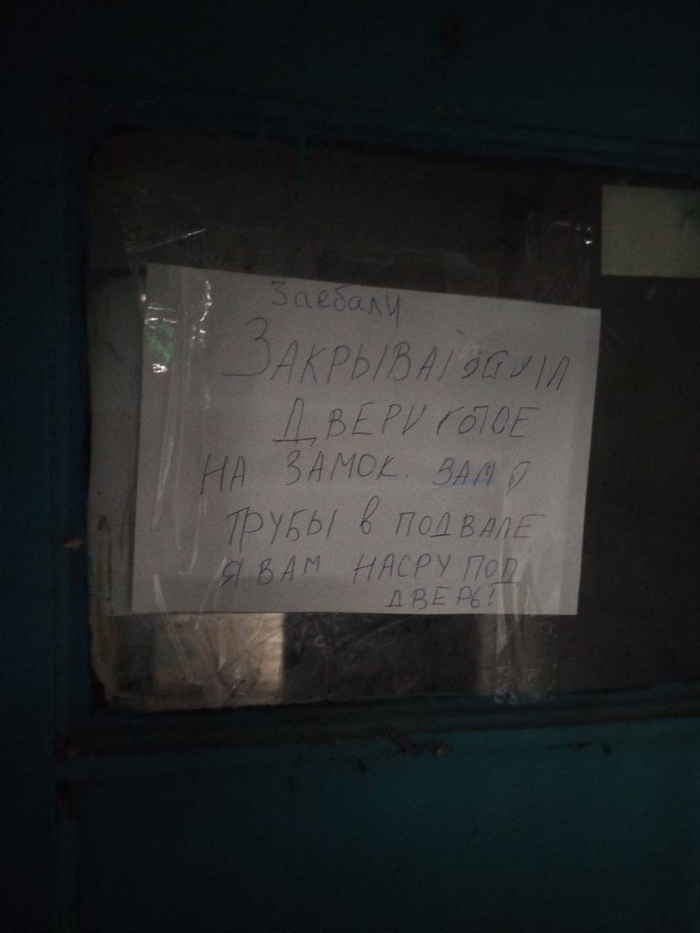 Заебали
ЗАКРЫВА
ДВЕРИ
НА ЗАМОК.
ТРУБЫ В ПОДВАЛЕ
Я ВАМ НАСРУ ПОД
ДВЕРЬ!